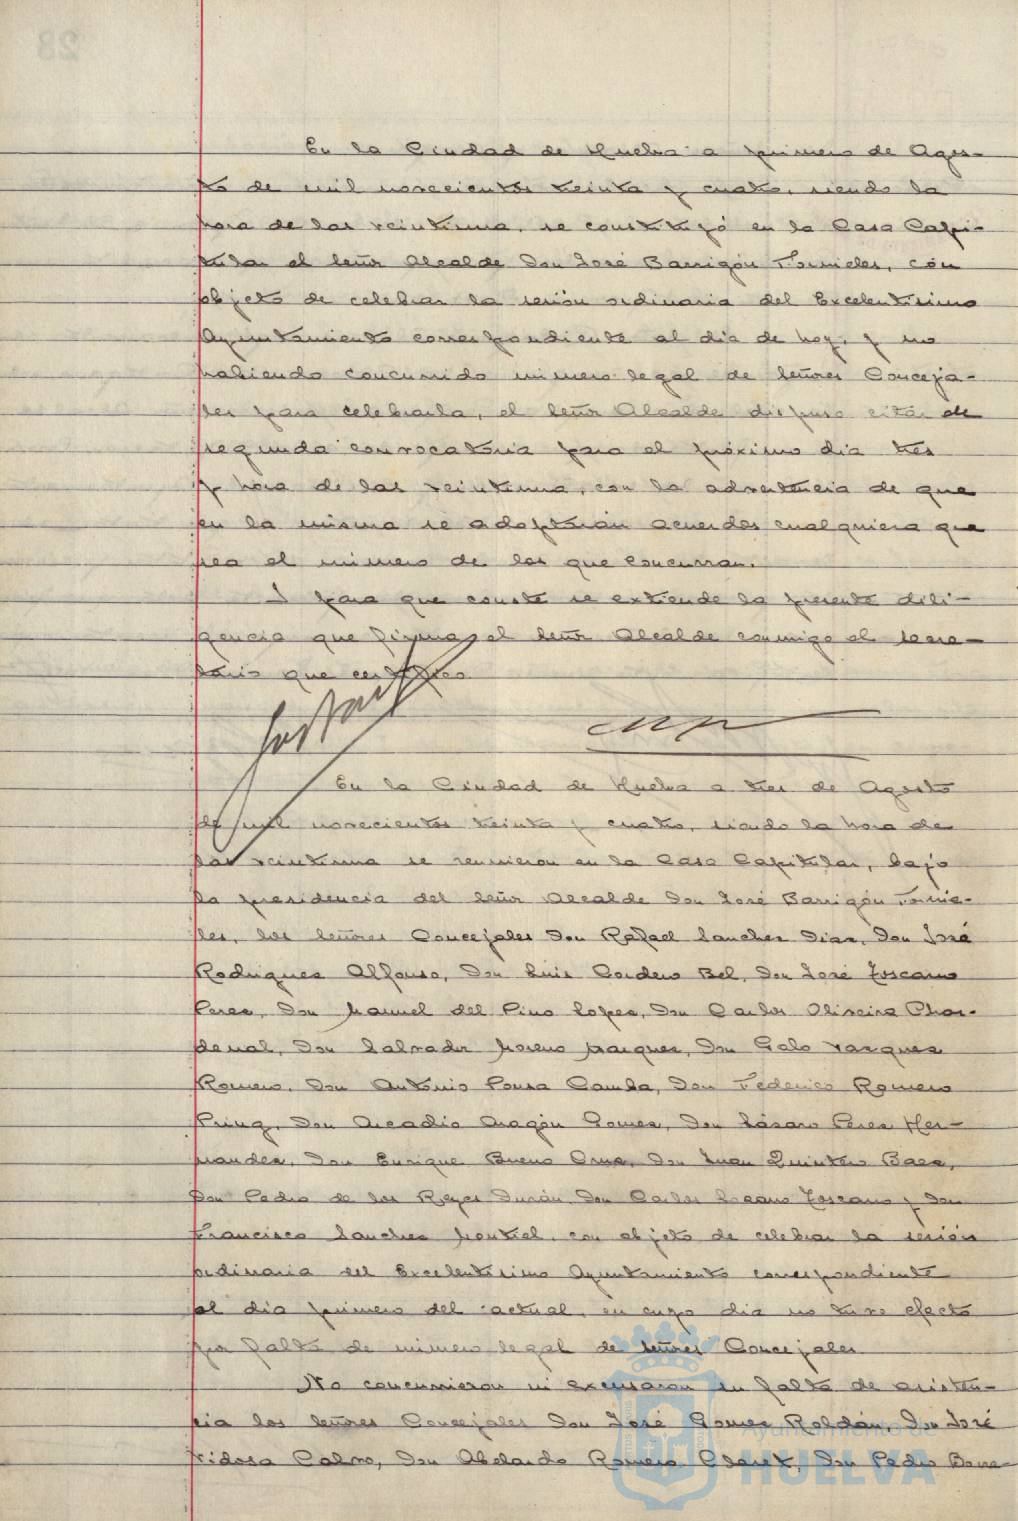 En la Ciudad de Huelva a primero de Agos-
to de mil novecientos treinta y cuatro, siendo la
hora de las veintiuna, se constituyó en la Casa Capi-
tular el Señor Alcalde Don José Barrigón Fornieles, con
objeto de celebrar la sesión ordinaria del Excelentísimo
Ayuntamiento correspondiente al día de hoy, y no
habiendo concurrido número legal de Señores Conceja-
les para celebrarla, el Señor Alcalde dispuso citar de
segunda convocatoria para el próximo día tres
y hora de las veintiuna, con la advertencia de que
en la misma se adoptarán acuerdos cualquiera que
sea el número de los que concurran.
Y para que conste se extiende la presente dili-
gencia que firma el Señor Alcalde conmigo el Secre-
tario que certifico
En la Ciudad de Huelva a tres de Agosto
de mil novecientos treinta y cuatro, siendo la hora de
las veintiuna se reunieron en la Casa Capitular, bajo
la presidencia del Señor Alcalde Don José Barrigón Fornie-
les, los Señores Concejales Don Rafael Sanchez Diaz, Don José
Rodriguez Alfonso, Don Luis Cordero Bel, Don José Toscano
Perez, Don Manuel del Pino Lopez, Don Carlos Oliveira Char-
denal, Don Salvador Moreno Marquez, Don Galo Vazquez
Romero, Don Antonio Pousa Camba, Don Federico Romero
Don Arcadio Aragón Gomez, Don Lázaro Perez Her-
nandez, Don Enrique Bueno Cruz, Don Juan Quintero Baez,
Don Pedro de los Reyes Durán, Don Carlos Lozano Toscano y Don
Francisco Sanchez Montiel, con objeto de celebrar la sesión
ordinaria del Excelentísimo Ayuntamiento correspondiente
al día primero del actual, en cuyo día no tuvo efecto
por falta de número legal de Señores Concejales
No concurrieron ni excusaron su falta de asisten-
cia los Señores Concejales Don José Gomez Roldán, Don José
Vidosa Calvo, Don Abelardo Romero Claret, Don Pedro
Ayuntamiento de
HUELVA